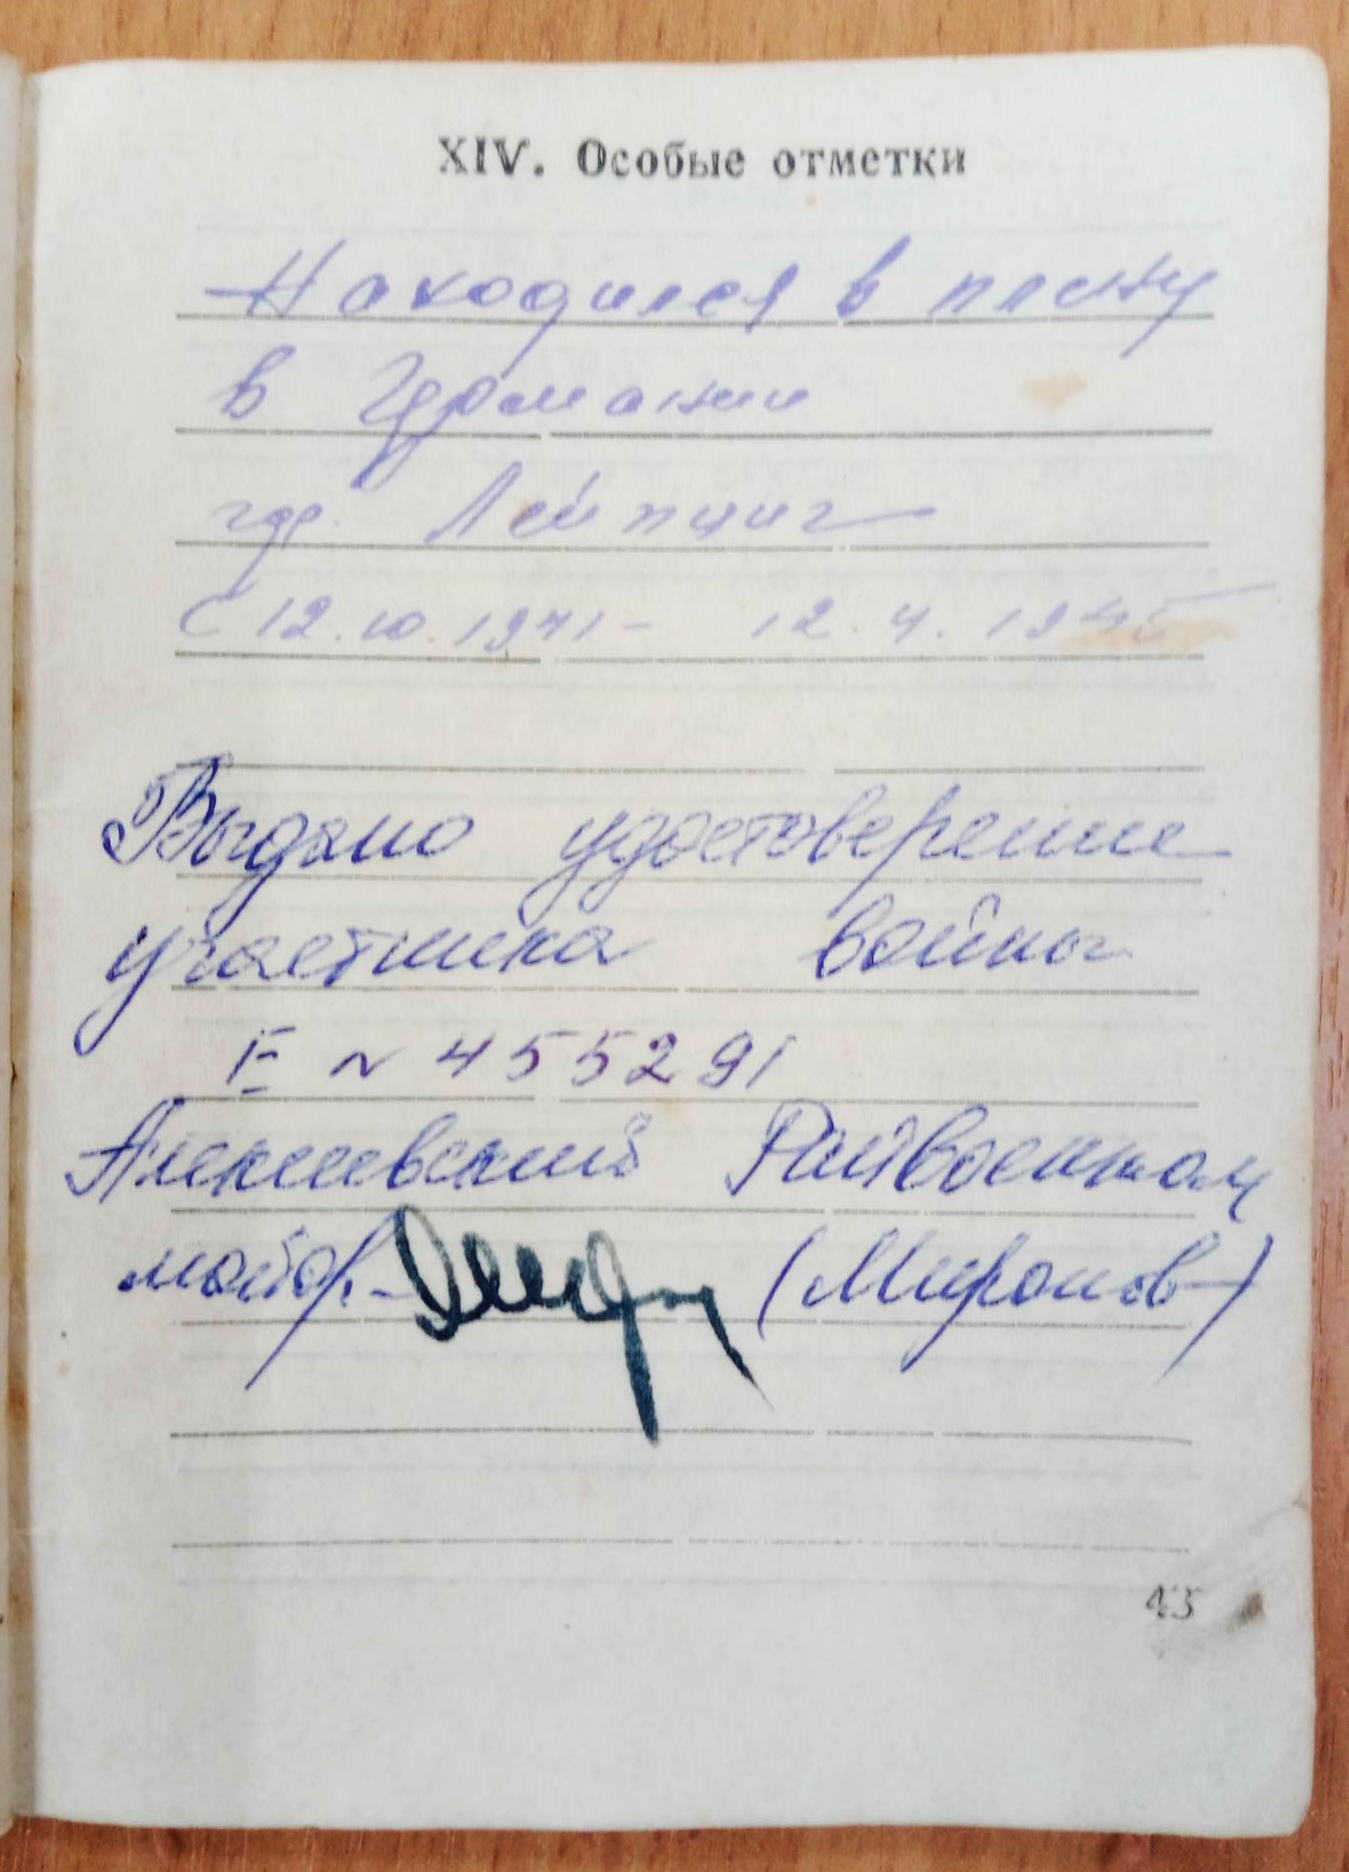 XIV. Особые отметки
Находился в плену
в Германии
гор. Лейпциг
С 12.10.1941 - 12.4.1945
Выдано удостоверение
участника войны
Е № 455291
Алексеевский Райвоенком
майор - (Миронов)
45